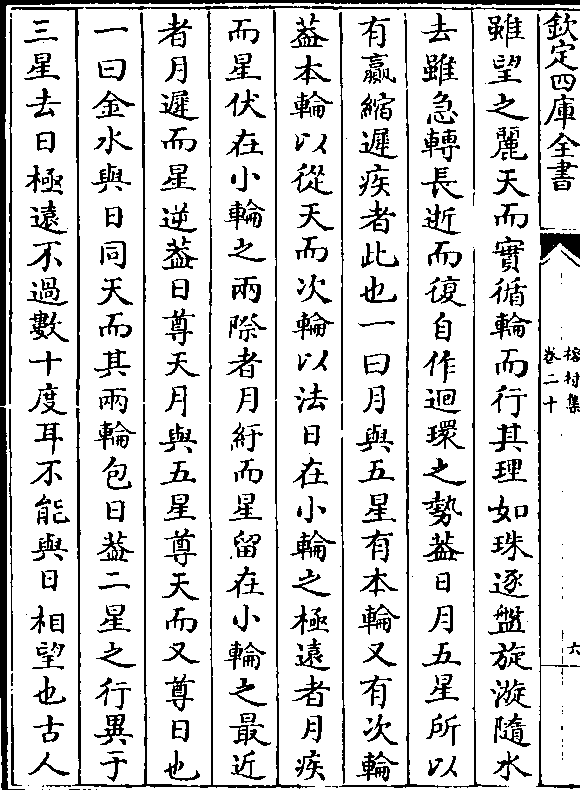 欽定四庫全書
榕村集
卷二十
六
雖望之麗天而實循輪而行其理如珠逐盤旋漩隨水
去雖急轉長逝而復自作迴環之勢葢日月五星所以
有贏縮遲疾者此也一曰月與五星有本輪又有次輪
葢本輪以從天而次輪以法日在小輪之極遠者月疾
而星伏在小輪之兩際者月紓而星留在小輪之最近
者月遲而星逆葢日尊天月與五星尊天而又尊日也
一曰金水與日同天而其兩輪包日葢二星之行異于
三星去日極遠不過數十度耳不能與日相望也古人